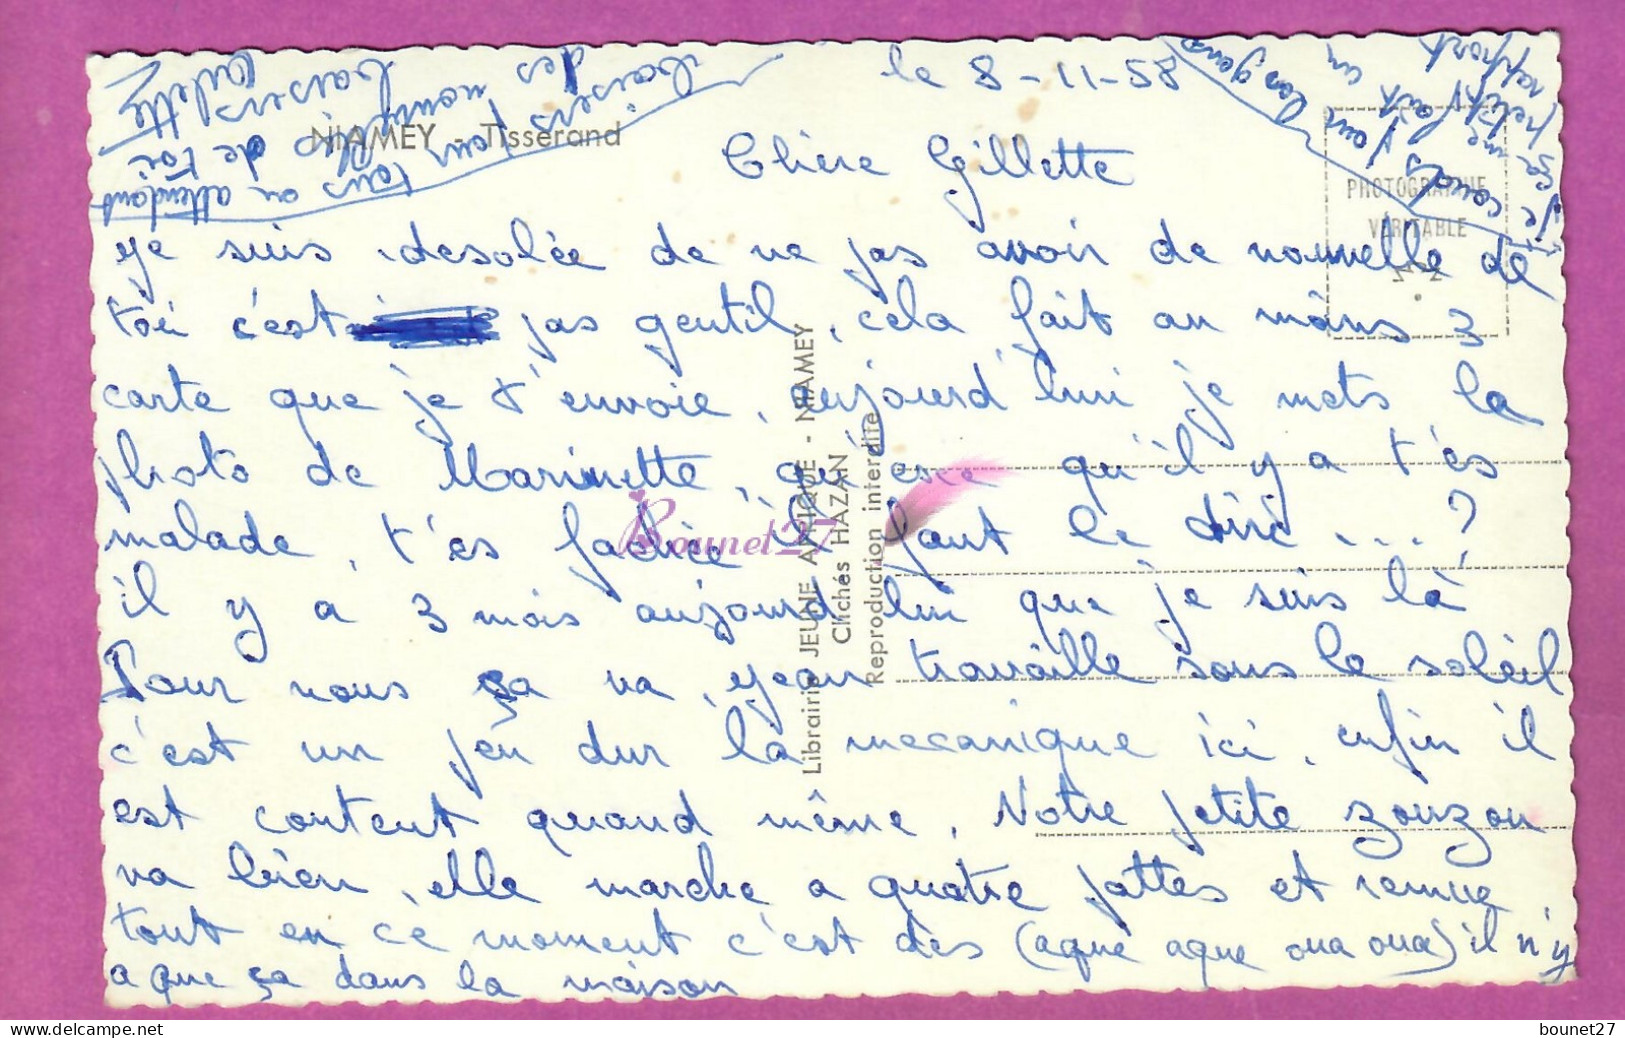 le 8-11-58
NIAMEY - Tisserand
Chère Gillette
Je suis desolée de ne pas avoir de nouvelle de
toi c'est pas gentil, cela fait au moins 3
carte que je t'envoie, aujourd'hui je mets la
photo de Marinette, qu'es ce qu'il y a t'es
malade, t'es fachée il faut le dire ... ?
il y a 3 mois aujourd lui que je suis là
Pour nous ça va, Jean travaille sous le soleil
c'est un peu dur la mecanique ici, enfin il
est content quand même. Notre petite zouzou
va bien, elle marche a quatre pattes et remue
tout en ce moment c'est des (aque aque oua oua) il n'y
a que ça dans la maison
tous en attendant
de toi
baisers
des
Je
coups
ça me
fait un
petit
rapport
PHOTOGRAPHIE
VERITABLE
Librairie JEUNE AFRIQUE - NIAMEY
Clichés HAZAN
Reproduction interdite
Bounet27
www.delcampe.net
bounet27